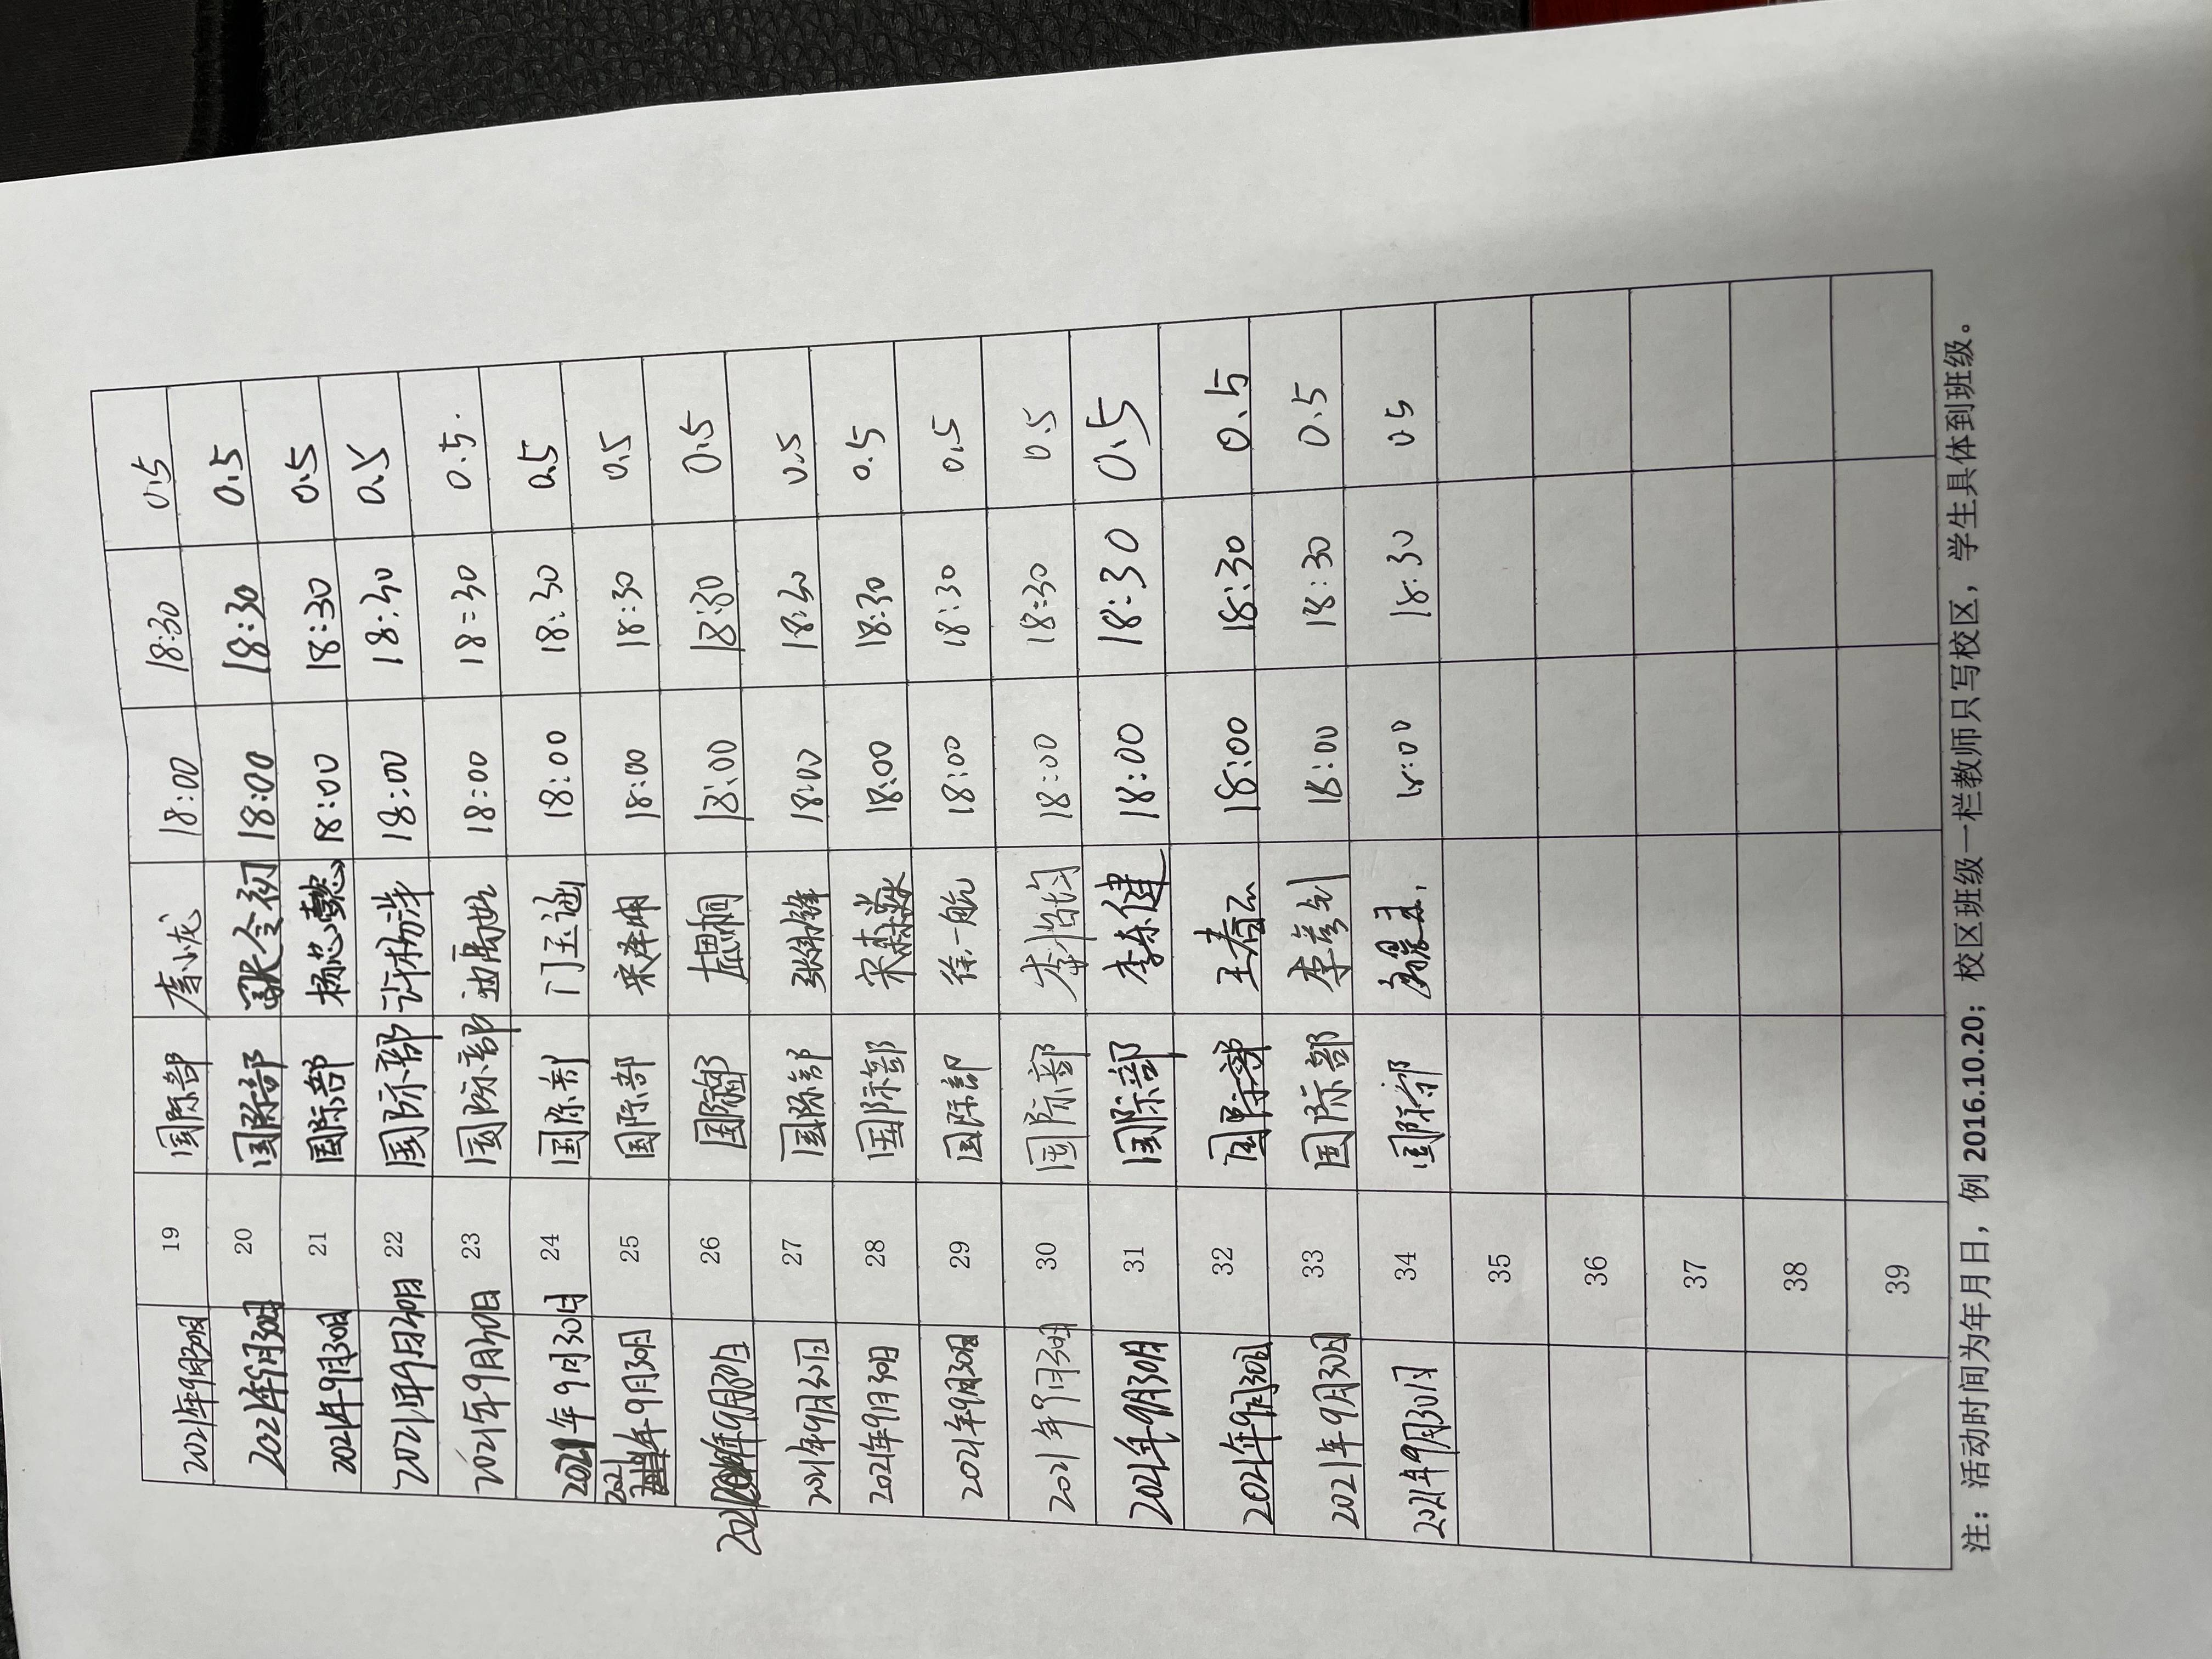 2021年9月30日 19 国际部 李小龙 18:00 18:30 0.5
2021年9月30日 20 国际部 张令初 18:00 18:30 0.5
2021年9月30日 21 国际部 杨芯懿 18:00 18:30 0.5
2021年9月30日 22 国际部 许杨洋 18:00 18:30 0.5
2021年9月30日 23 国际部 18:00 18:30 0.5.
2021年9月30日 24 国际部 门玉涵 18:00 18:30 0.5
2021年9月30日 25 国际部 18:00 18:30 0.5
2021年9月30日 26 国际部 18:00 18:30 0.5
2021年9月30日 27 国际部 张炜锋 18:00 18:30 0.5
2021年9月30日 28 国际部 宋森淼 18:00 18:30 0.5
2021年9月30日 29 国际部 徐一航 18:00 18:30 0.5
2021年9月30日 30 国际部 李怡均 18:00 18:30 0.5
2021年9月30日 31 国际部 李东健 18:00 18:30 0.5
2021年9月30日 32 国际部 王春云 18:00 18:30 0.5
2021年9月30日 33 国际部 18:00 18:30 0.5
2021年9月30日 34 国际部 18:00 18:30 0.5
35
36
37
38
39
注：活动时间为年月日，例 2016.10.20；校区班级一栏教师只写校区，学生具体到班级。